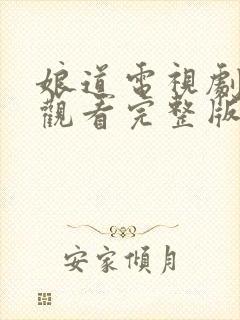 娘道電視劇
觀看完整版
安家傾月